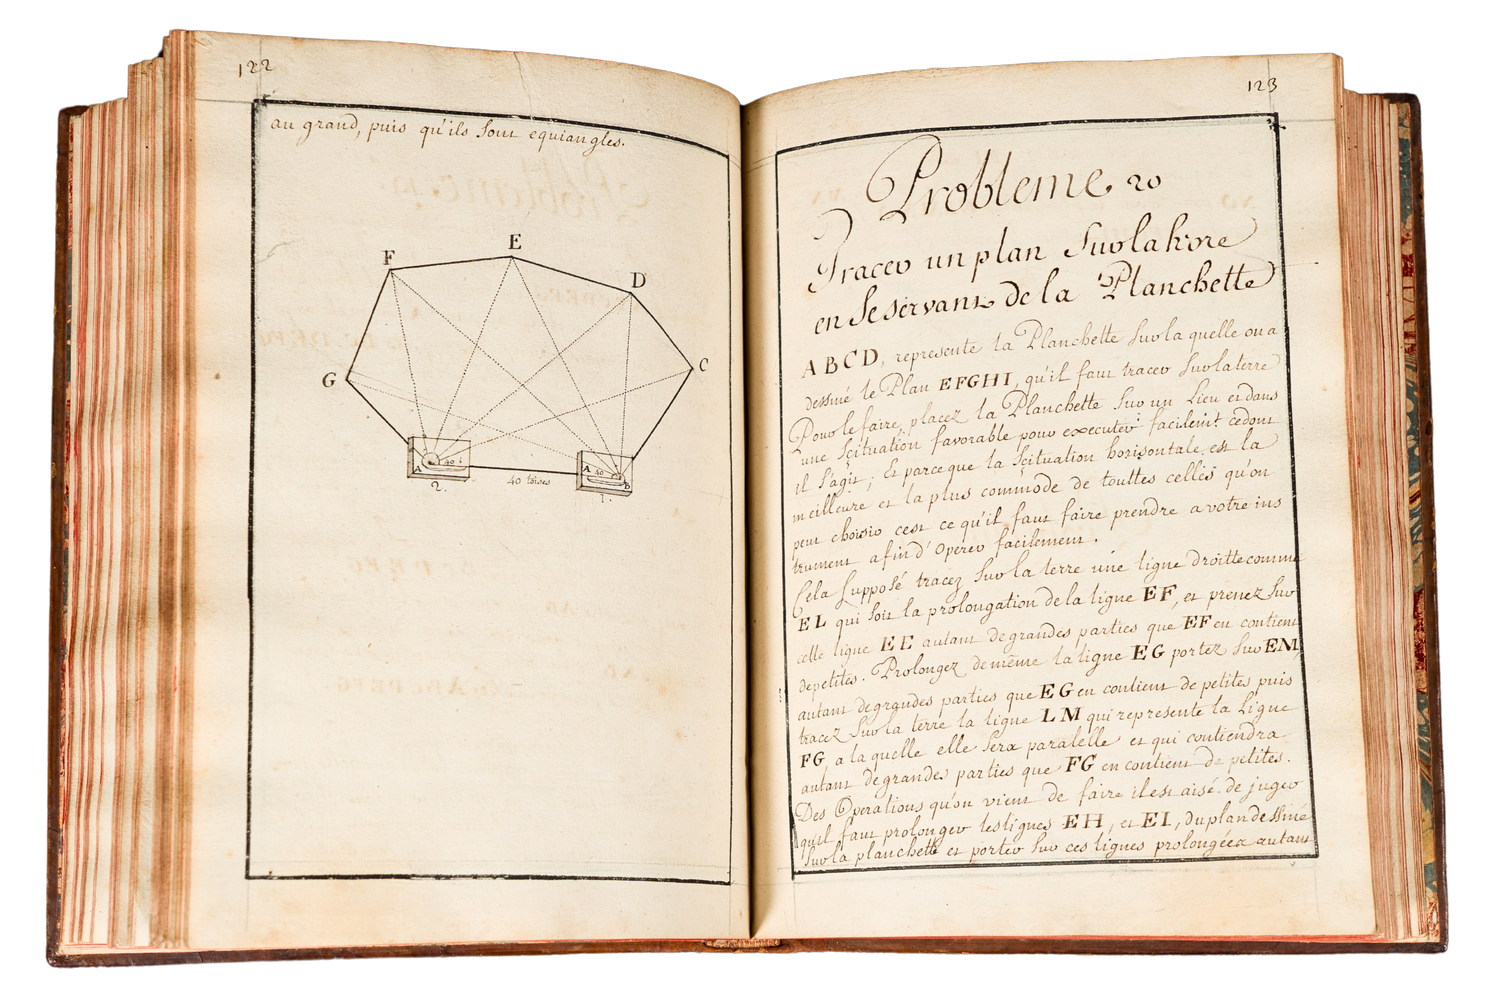 122
au grand, puis qu'ils sont equiangles.
E
F
D
G
C
A
40 t
2.
40 toises
A
40
B
1.
123
Probleme 20
Tracer un plan sur la terre
en se servant de la Planchette
ABCD, represente la Planchette sur la quelle on a
dessiné le Plan EFGHI, qu'il faut tracer sur la terre
Pour le faire, placez la Planchette sur un Lieu et dans
une scituation favorable pour executer facilemt. ce dont
il s'agit; Et parce que la scituation horisontale est la
meilleure et la plus commode de touttes celles qu'on
peut choisir cest ce qu'il faut faire prendre a votre ins
trument afin d'operer facilement.
Cela supposé tracez sur la terre une ligne droitte comme
EL qui soit la prolongation de la ligne EF, et prenez sur
celle ligne EE autant de grandes parties que EF en contient
de petites. Prolongez de même la ligne EG portez sur EM,
autant de grandes parties que EG en contient de petites puis
tracez sur la terre la ligne LM qui represente la Ligne
FG, a la quelle elle sera paralelle et qui contiendra
autant de grandes parties que FG en contient de petites.
Des Operations qu'on vient de faire il est aisé de juger
qu'il faut prolonger les lignes EH, et EI, du plan dessiné
sur la planchette et porter sur ces lignes prolongées autant